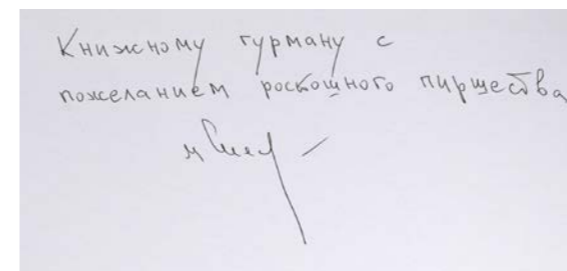 Книжному гурману с
пожеланием роскошного пиршества